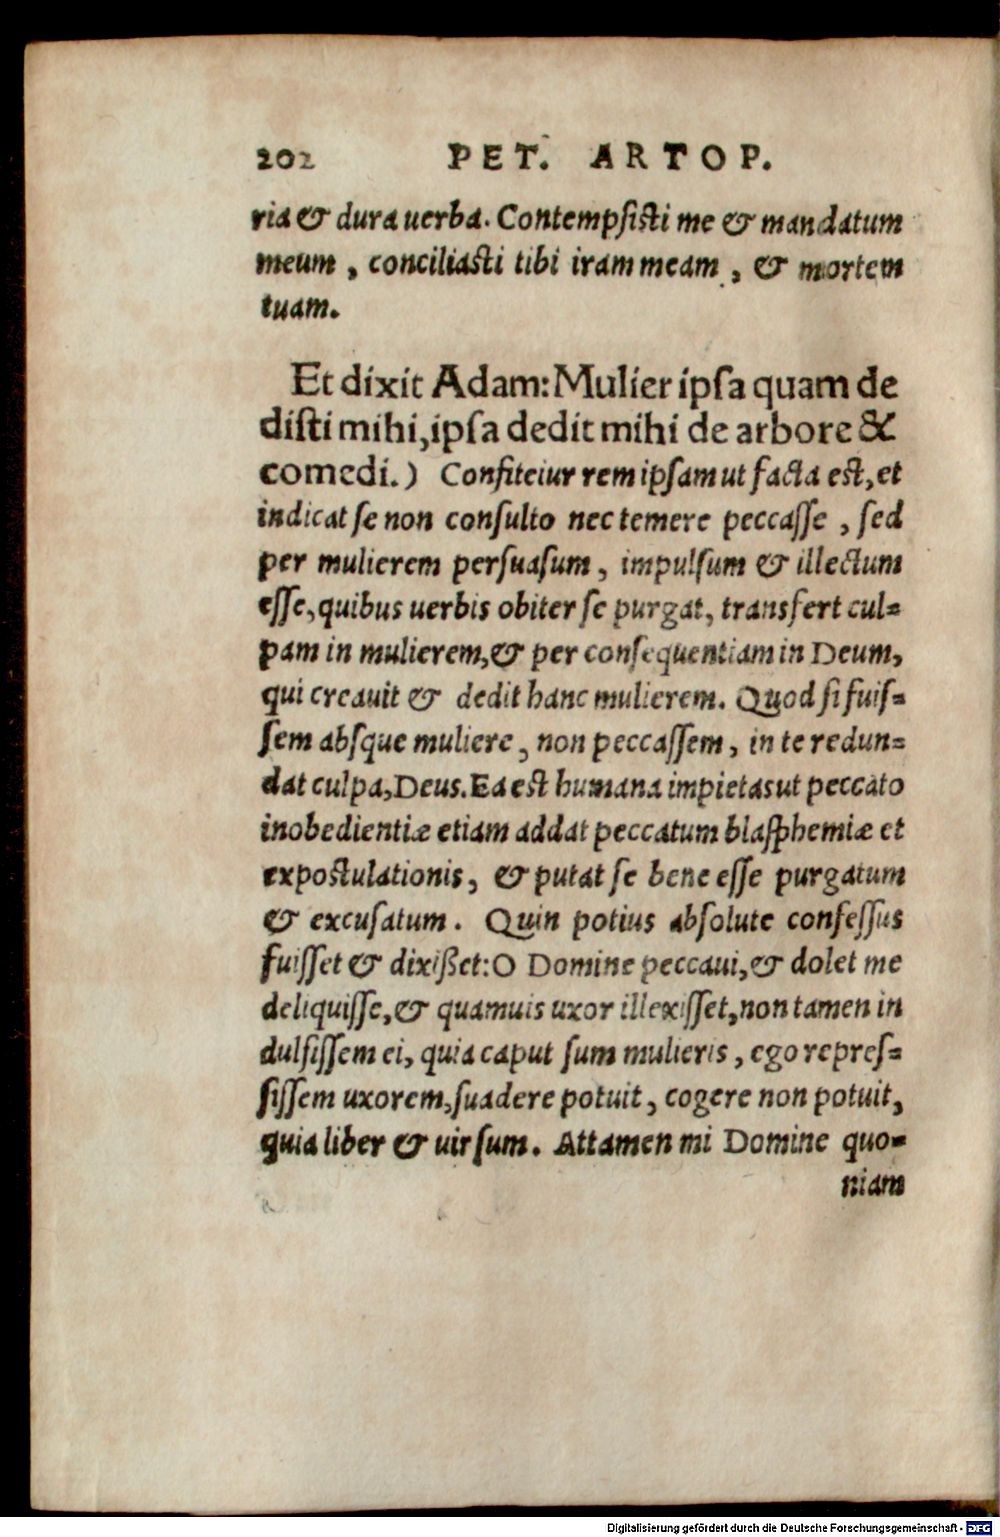 202 PET. ARTOP.
ria & dura uerba. Contempſiſti me & mandatum
meum, conciliaſti tibi iram meam, & mortem
tuam.
Et dixit Adam: Mulier ipſa quam de
diſti mihi, ipſa dedit mihi de arbore &
comedi.) Confiteiur rem ipſam ut facta eſt, et
indicat ſe non conſulto nec temere peccaſſe, ſed
per mulierem perſuaſum, impulſum & illectum
eſſe, quibus uerbis obiter ſe purgat, transfert cul=
pam in mulierem, & per conſequentiam in Deum,
qui creauit & dedit hanc mulierem. Quod ſi fuiſ=
ſem abſque muliere, non peccaſſem, in te redun=
dat culpa, Deus. Ea eſt humana impietas ut peccato
inobedientiæ etiam addat peccatum blaſphemiæ et
expoſtulationis, & putat ſe bene eſſe purgatum
& excuſatum. Quin potius abſolute confeſſus
fuiſſet & dixißet: O Domine peccaui, & dolet me
deliquiſſe, & quamuis uxor illexiſſet, non tamen in
dulſiſſem ei, quia caput ſum mulieris, ego repreſ=
ſiſſem uxorem, ſuadere potuit, cogere non potuit,
quia liber & uir ſum. Attamen mi Domine quo=
niam
Digitalisierung gefördert durch die Deutsche Forschungsgemeinschaft - DFG